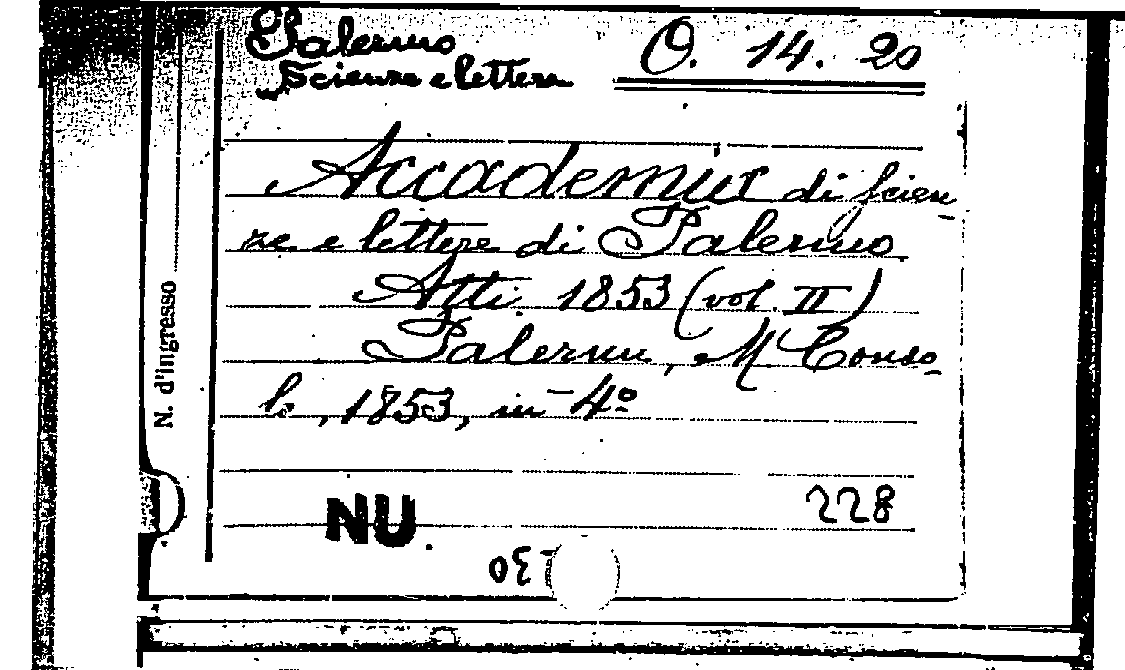 Palermo
Scienze e lettere
O. 14. 20
Accademia di Scien-
ze e lettere di Palermo.
Atti. 1853 (vol. II)
Palermo, M. Conso-
lo, 1853, in-4º
N. d'ingresso
NU.
228